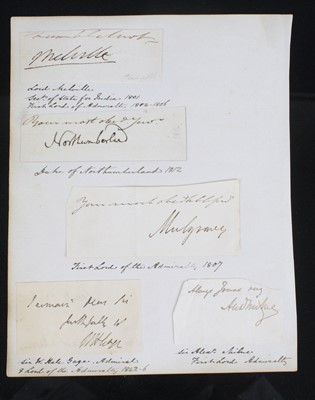 Melville
Lord Melville
Secy. of State for India 1801
First Lord of Admiralty 1804-1806
Your most obedt. Servt.
Northumberland
Duke of Northumberland 1812
Your most obedt
Mulgrave
First Lord of the Admiralty 1807
I remain Dear Sir
faithfully yr
W H Gage
Sir W. Hale Gage - Admiral
& Lord of the Admiralty 1842-6
Always Yours very
Sir Alexr. Milne
First Lord Admiralty